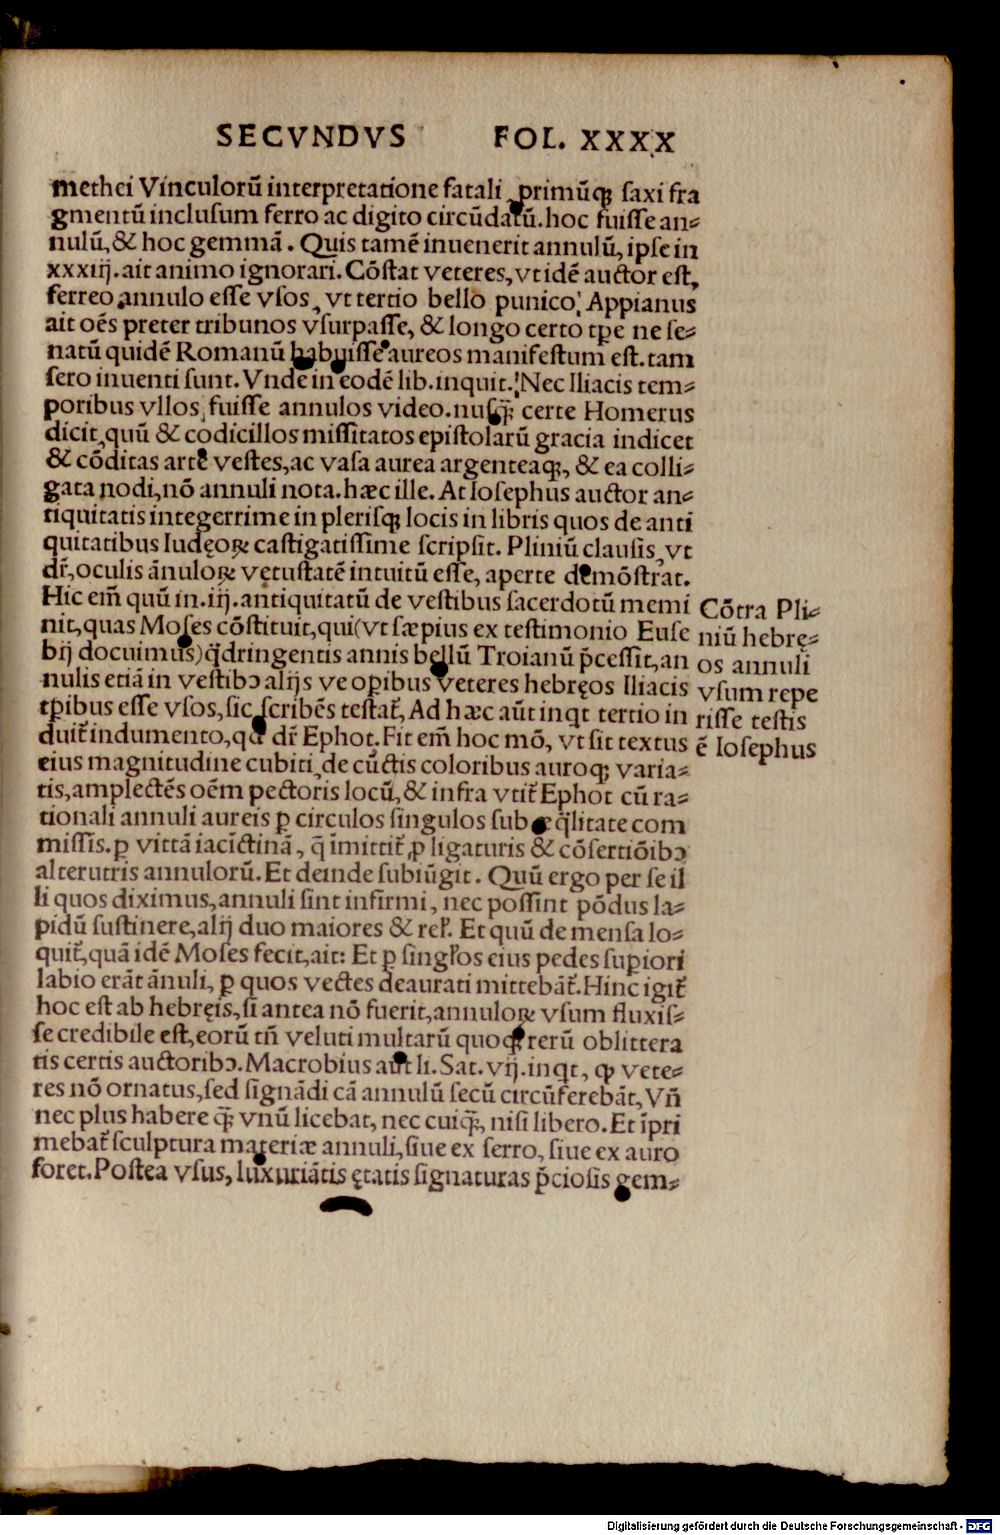 SECVNDVS FOL. XXXX
methei Vinculorū interpretatione fatali, primūq; saxi fra
gmentū inclusum ferro ac digito circūdatū. hoc fuisse an⸗
nulū, & hoc gemmā. Quis tamē inuenerit annulū, ipse in
xxxiij. ait animo ignorari. Cōstat veteres, vt idē auctor est,
ferreo annulo esse vsos, vt tertio bello punico, Appianus
ait oēs preter tribunos vsurpasse, & longo certo tp̄e ne se⸗
natū quidē Romanū habuisse aureos manifestum est. tam
sero inuenti sunt. Vnde in eodē lib. inquit. Nec Iliacis tem⸗
poribus vllos fuisse annulos video. nusq̄; certe Homerus
dicit, quū & codicillos missitatos epistolarū gracia indicet
& cōditas arte vestes, ac vasa aurea argenteaq;, & ea colli⸗
gata nodi, nō annuli nota. hæc ille. At Iosephus auctor an⸗
tiquitatis integerrime in plerisq; locis in libris quos de anti
quitatibus Iudęoꝝ castigatissime scripsit. Pliniū clausis, vt
dr̄, oculis ānuloꝝ vetustatē intuitū esse, aperte demōstrat.
Hic em̄ quū in. iij. antiquitatū de vestibus sacerdotū memi
nit, quas Moses cōstituit, qui (vt sæpius ex testimonio Euse
bij docuimus) q̄dringentis annis bellū Troianū p̄cessit, an
nulis etiā in vestibꝰ alijs ve oꝑibus veteres hebręos Iliacis
tꝑibus esse vsos, sic scribēs testat᷑, Ad hæc aūt inqt tertio in
duit᷑ indumento, qd dr̄ Ephot. Fit em̄ hoc mō, vt sit textus
eius magnitudine cubiti, de cūctis coloribus auroq; varia⸗
tis, amplectēs oēm pectoris locū, & infra vtit᷑ Ephot cū ra⸗
tionali annuli aureis ꝑ circulos singulos sub æq̄litate com
missis. ꝑ vittā iacīctinā, q̄ īmittit᷑, ꝓ ligaturis & cōsertiōibꝰ
alterutris annulorū. Et deinde subiūgit. Quū ergo per se il
li quos diximus, annuli sint infirmi, nec possint pōdus la⸗
pidū sustinere, alij duo maiores & rel̕. Et quū de mensa lo⸗
quit᷑, quā idē Moses fecit, ait: Et ꝑ singl̕os eius pedes suꝑiori
labio erāt ānuli, ꝑ quos vectes deaurati mittebāt᷑. Hinc igit᷑
hoc est ab hebręis, si antea nō fuerit, annuloꝝ vsum fluxis⸗
se credibile est, eorū tn̄ veluti multarū quoq; rerū oblittera
tis certis auctoribꝰ. Macrobius aūt li. Sat. vij. inqt, ꝙ vete⸗
res nō ornatus, sed signādi cā annulū secū circūferebāt, Vn̄
nec plus habere q̄; vnū licebat, nec cuiq̄;, nisi libero. Et īpri
mebat᷑ sculptura materiæ annuli, siue ex ferro, siue ex auro
foret. Postea vsus, luxuriātis ętatis signaturas p̄ciosis gem⸗
Cōtra Pli⸗
niū hebrę⸗
os annuli
vsum repe
risse testis
ē Iosephus
Digitalisierung gefördert durch die Deutsche Forschungsgemeinschaft - DFG